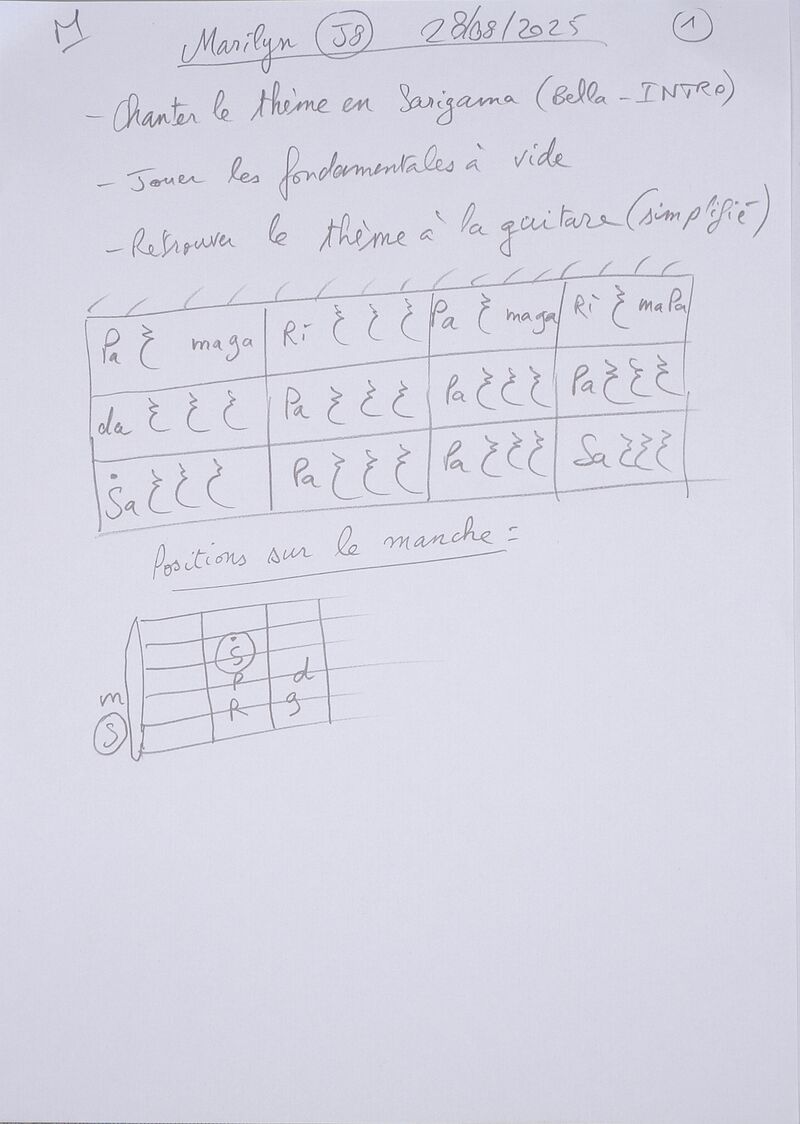 M
Marilyn J8 28/08/2025 1
- Chanter le thème en Sarigama (Bella - INTRO)
- Jouer les fondamentales à vide
- Retrouver le thème à la guitare (simplifié)
Pa maga Ri Pa maga Ri maPa
da Pa Pa Pa
Ṡa Pa Pa Sa
Positions sur le manche =
Ṡ
P d
m R g
S